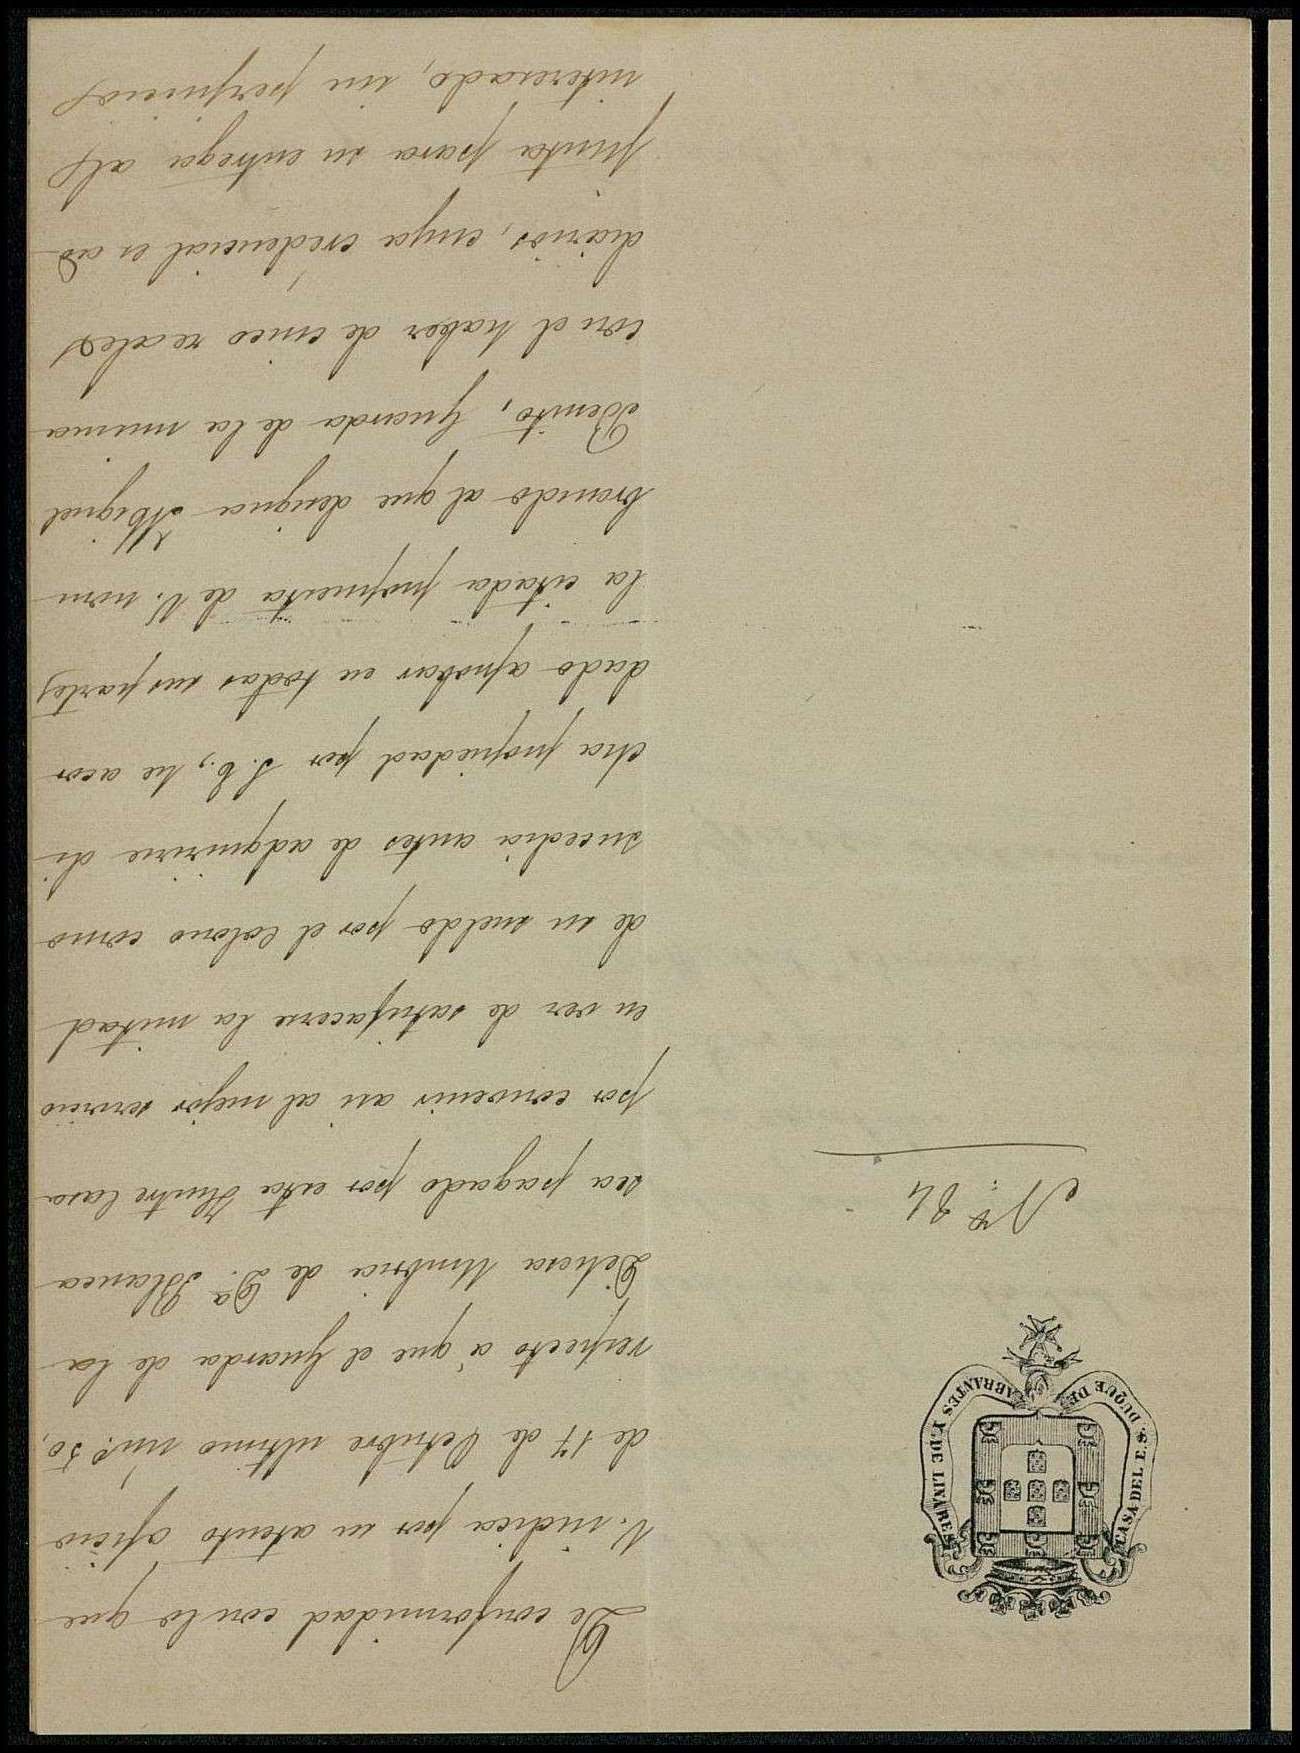 CASA DEL E.S. DUQUE DE ABRANTES Y DE LINARES
Nº 84
De conformidad con lo que
V. indica por su atento oficio
de 17 de Octubre ultimo num.º 50,
respecto á que el Guarda de la
Dehesa Umbria de D.ª Blanca
sea pagado por esta Ilustre Casa
por convenir asi al mejor servicio
en vez de satisfacerse la mitad
de su sueldo por el Colono como
sucedia antes de adquirirse di
cha propiedad por S. E., he acor
dado aprobar en todas sus partes
la citada propuesta de V. nom
brando al que designa Miguel
Benito, Guarda de la misma
con el haber de cinco reales
diarios, cuya credencial es ad
junta para su entrega al
interesado, sin perjuicio